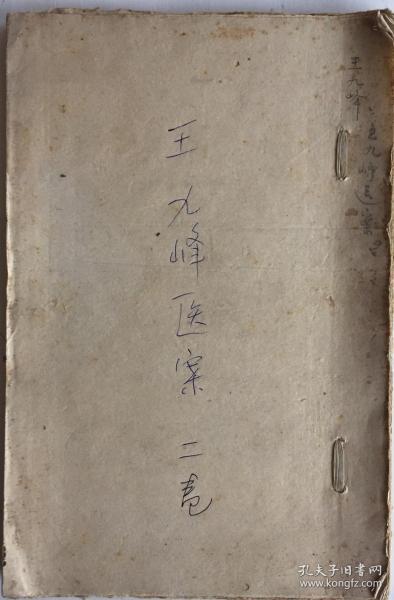 王九峰
九峰医案
王九峰医案 二卷
孔夫子旧书网
www.kongfz.com